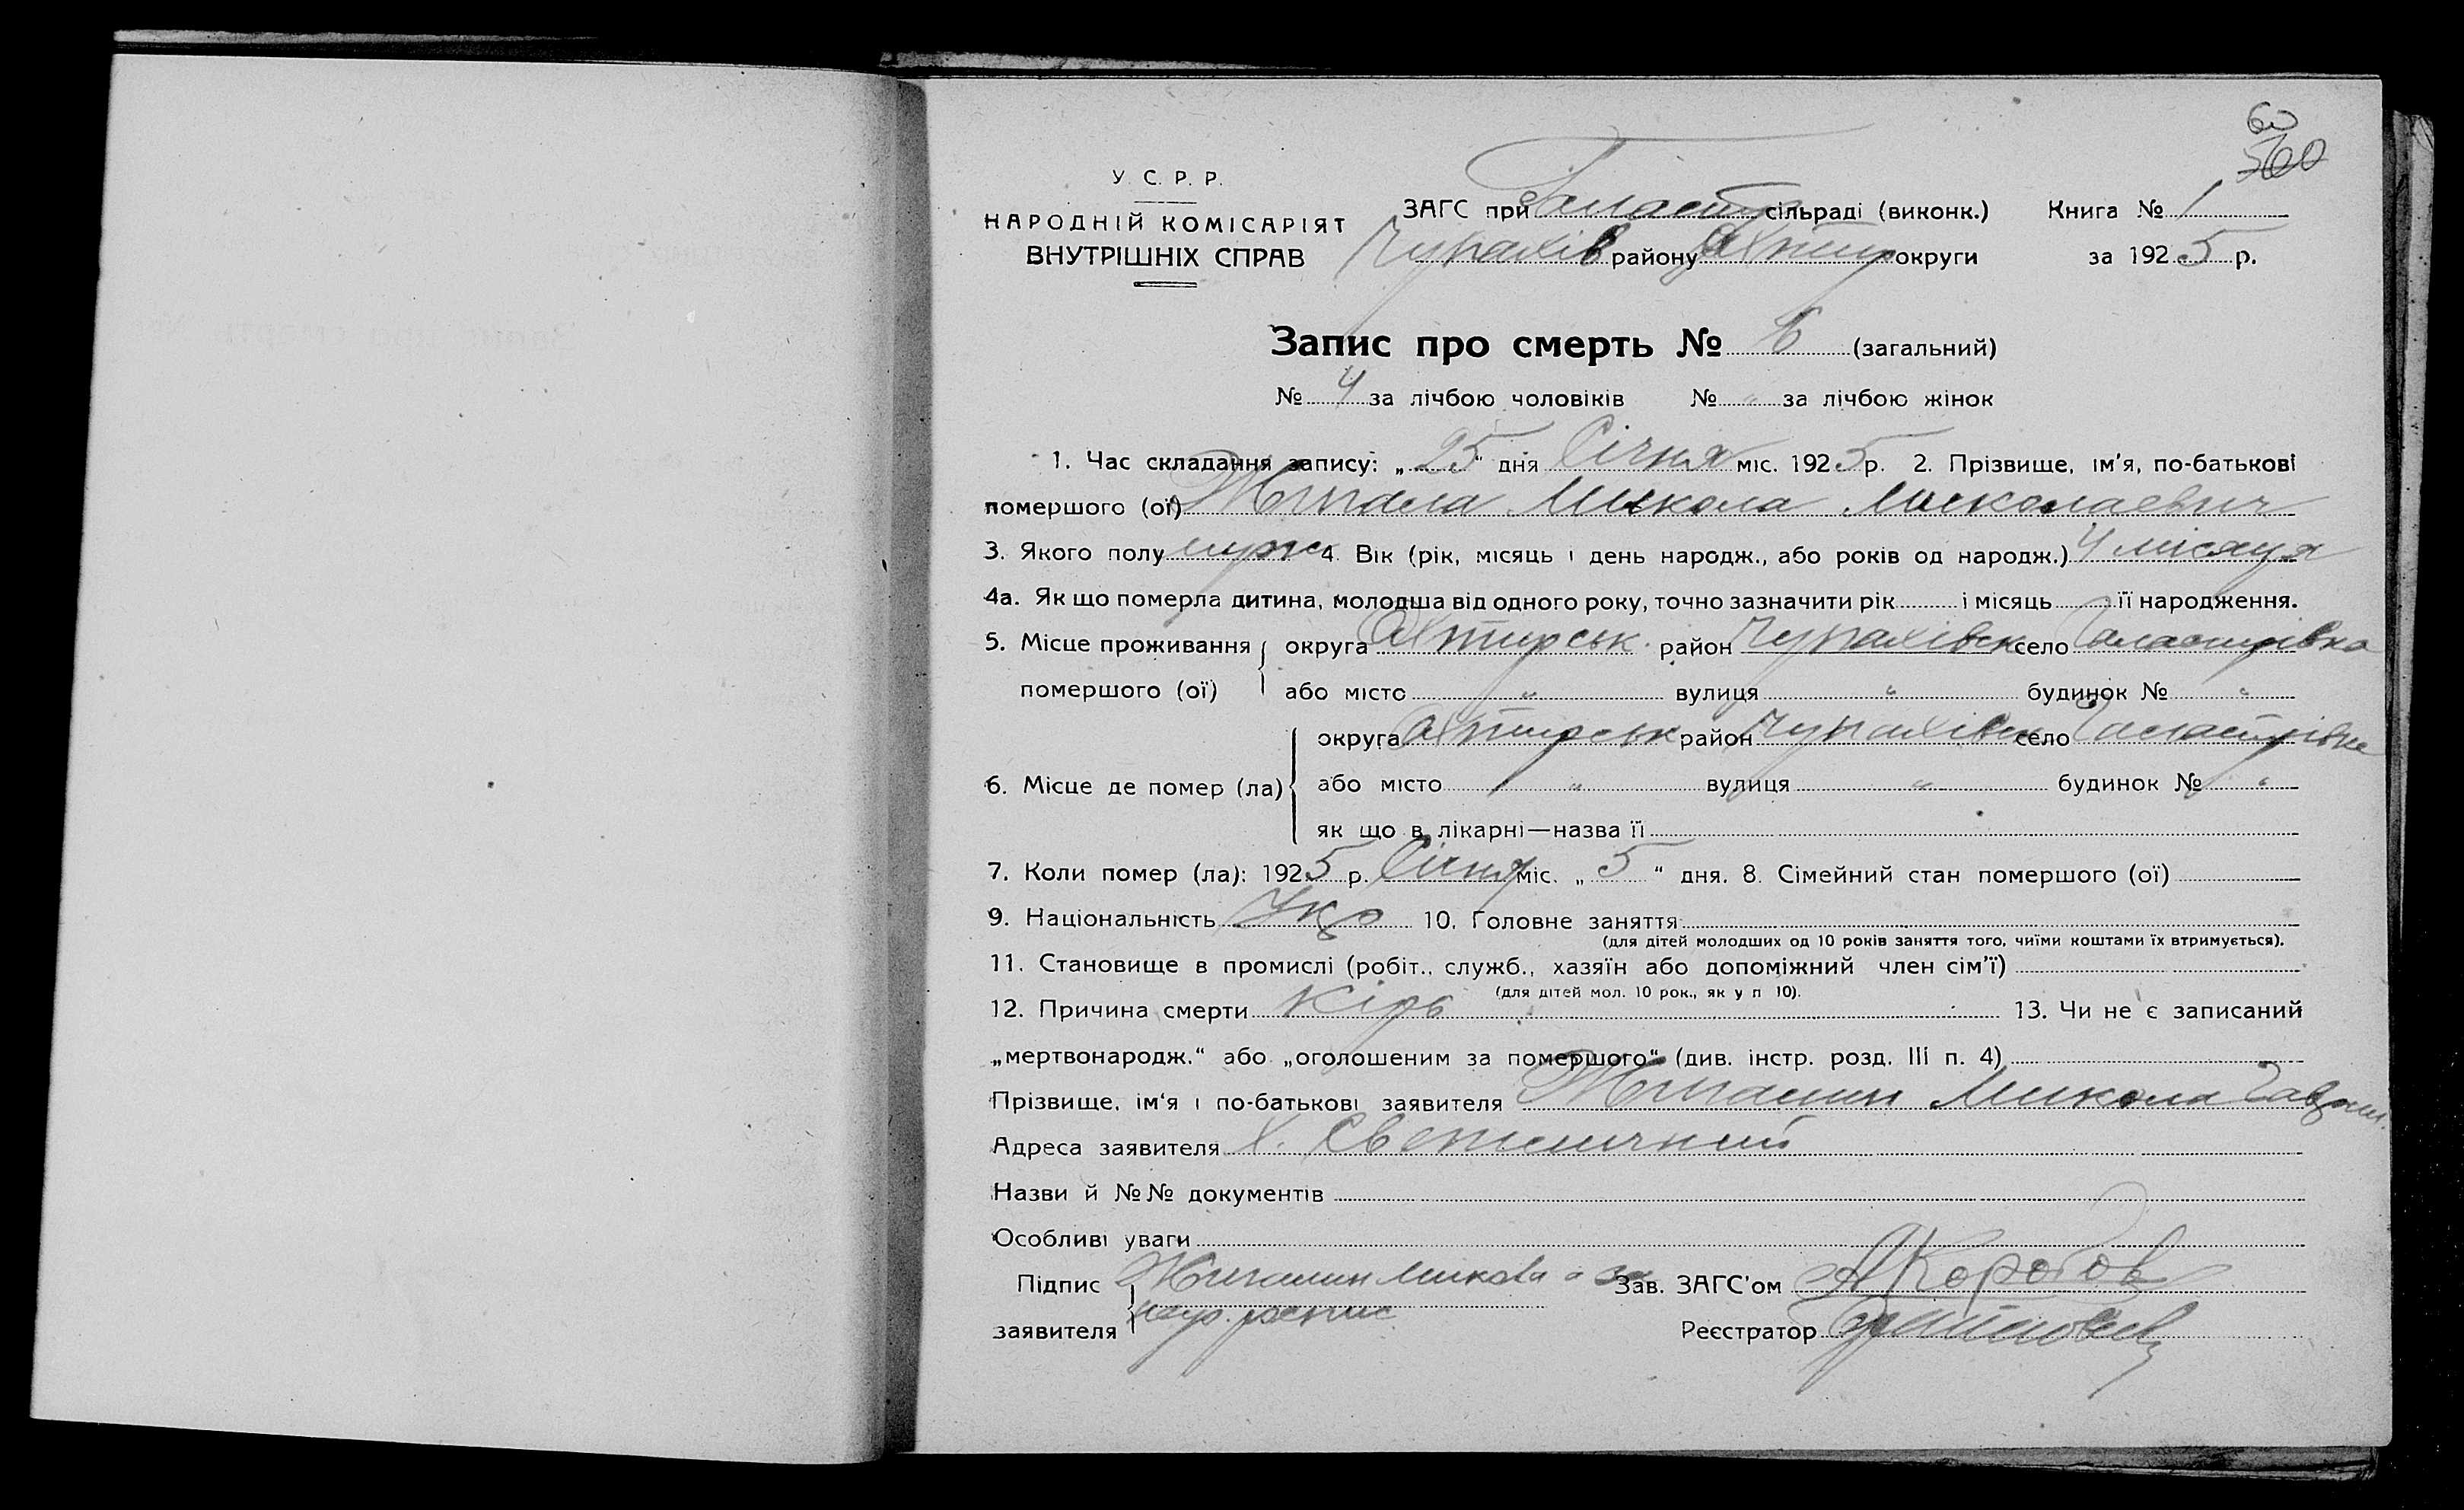 60
560
У. С. Р. Р.
НАРОДНІЙ КОМІСАРІЯТ
ВНУТРІШНІХ СПРАВ
ЗАГС при сільраді (виконк.) Книга № 1
Чупахів району Охтир округи за 1925 р.
Запис про смерть № 6 (загальний)
№ 4 за лічбою чоловіків № " за лічбою жінок
1. Час складання запису: „ 25 “ дня Січня міс. 1925 р. 2. Прізвище, ім'я, по-батькові
помершого (ої) Жигала Микола Миколаевич
3. Якого полу муж 4. Вік (рік, місяць і день народж., або років од народж.) 4 місяця
4а. Як що померла дитина, молодша від одного року, точно зазначити рік і місяць її народження.
5. Місце проживання округа Охтирськ район Чупахівск село
помершого (ої) або місто " вулиця " будинок № "
округа Охтирськ район Чупахівск село
6. Місце де помер (ла) або місто " вулиця " будинок № "
як що в лікарні—назва її
7. Коли помер (ла): 1925 р. Січня міс. „ 5 “ дня. 8. Сімейний стан помершого (ої)
9. Національність Укр 10. Головне заняття
(для дітей молодших од 10 років заняття того, чиїми коштами їх втримується).
11. Становище в промислі (робіт., служб., хазяїн або допоміжний член сім'ї)
(для дітей мол. 10 рок., як у п 10).
12. Причина смерти Кірь 13. Чи не є записаний
„мертвонародж.“ або „оголошеним за помершого“ (див. інстр. розд. III п. 4)
Прізвище, ім'я і по-батькові заявителя Микола
Адреса заявителя Х. Светличний
Назви й №№ документів
Особливі уваги
Підпис Микола а за Зав. ЗАГС'ом АКоробов
заявителя Реєстратор